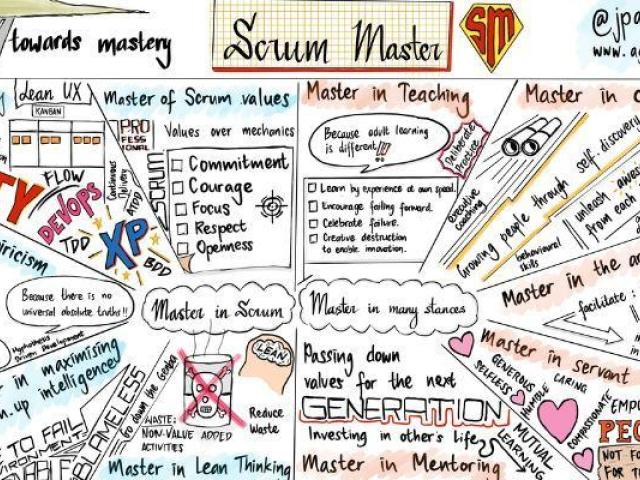 towards mastery
Scrum Master
SM
@jpa
www.
Lean UX
KANBAN
FLOW
DEVOPS
TDD
XP
BDD
ATDD
Continuous
Delivery
Master of Scrum values
PRO
FESS
IONAL
SCRUM
Values over mechanics
Commitment
Courage
Focus
Respect
Openness
Master in Teaching
Because adult learning
is different!!
Deliberate
Practice
Learn by experience at own speed.
Encourage failing forward.
Celebrate failure.
Creative destruction
to enable innovation.
Master in
executive
coaching
Growing people through self-discovery
behavioural
skills
unleash
from each
Because there is no
universal absolute truths!!
Hypothesis
Driven Development
Master in Scrum
Master in many stances
Master in the
facilitate:
in maximising
intelligence
TO FAIL
BLAMELESS
Go down the Gemba
WASTE:
NON-VALUE ADDED
ACTIVITIES
LEAN
Reduce
waste
Master in Lean Thinking
Passing down
values for the next
GENERATION
Investing in other's life
Master in Mentoring
MUTUAL
LEARNING
Master in servant
GENEROUS
SELFLESS
HUMBLE
CARING
COMPASSIONATE
NOT FO
FOR T